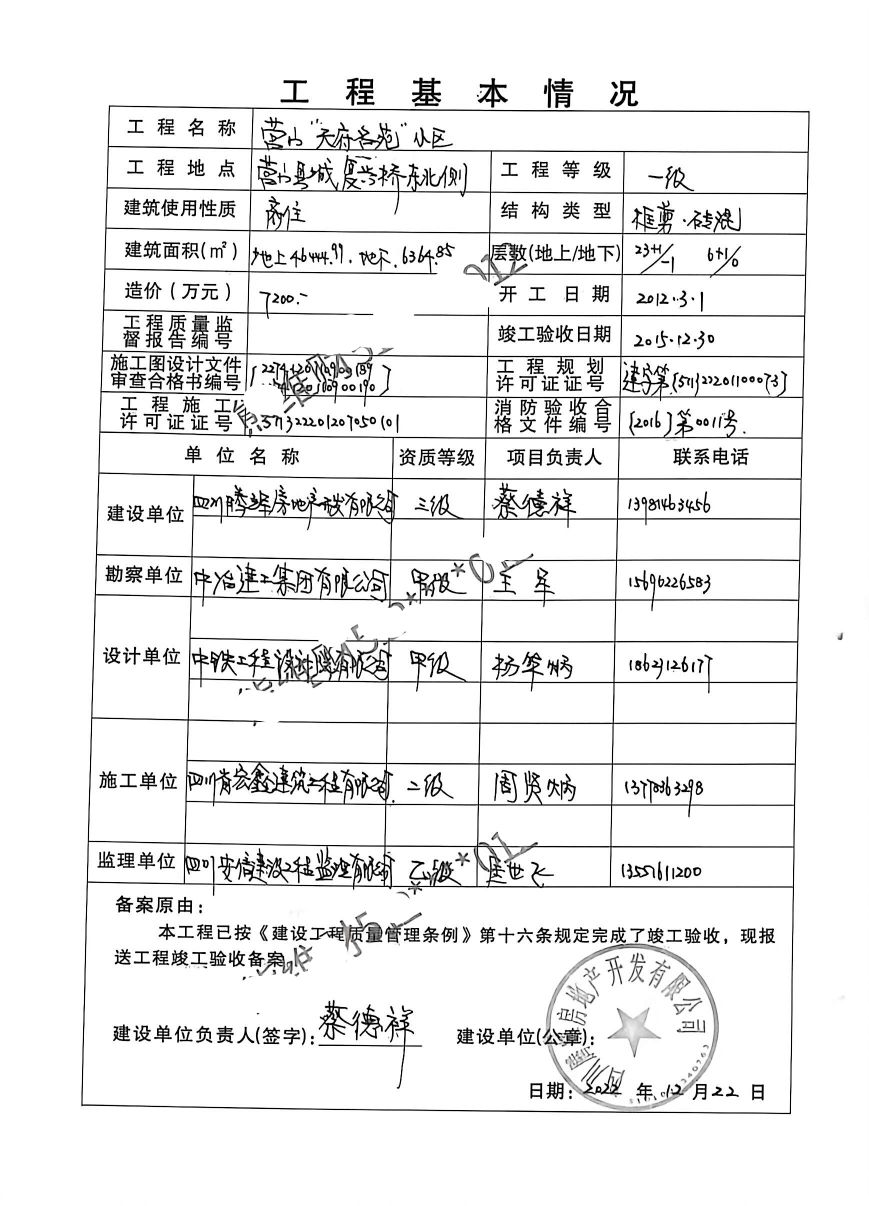 工程基本情况
工程名称 营山“天府名苑”小区
工程地点 营山县城复兴桥东北侧 工程等级 一级
建筑使用性质 商住 结构类型 框剪·砖混
建筑面积(㎡) 地上46444.99.地下.6364.85 层数(地上/地下) 23+1/-1 6+1/0
造价(万元) 7200.- 开工日期 2012.3.1
工程质量监督报告编号 竣工验收日期 2015.12.30
施工图设计文件审查合格书编号 工程规划许可证证号
工程施工许可证证号 513222201207050101 消防验收合格文件编号 [2016]第0011号.
单位名称 资质等级 项目负责人 联系电话
建设单位 三级 蔡德祥 13981463456
勘察单位 中冶建工集团有限公司 甲级 王军 15696226583
设计单位 甲级 杨华炳 18623126177
施工单位 二级 周贤炳
监理单位 四川安信建设工程监理有限公司 乙级 13551611200
备案原由:
本工程已按《建设工程质量管理条例》第十六条规定完成了竣工验收,现报
送工程竣工验收备案
建设单位负责人(签字): 蔡德祥 建设单位(公章):
房地产开发有限公司
日期: 2022 年 12 月 22 日